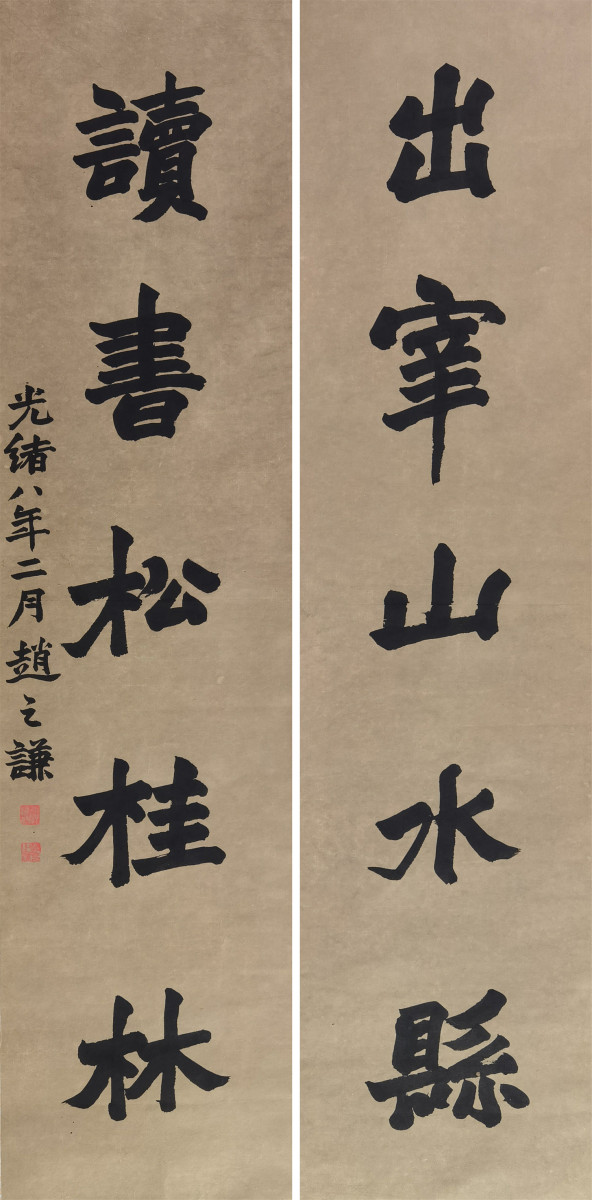 出宰山水縣
讀書松桂林
光緒八年二月趙之謙